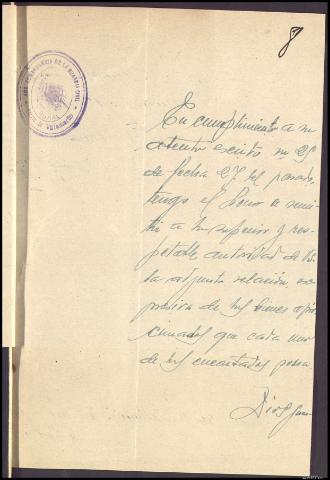 8
En cumplimiento a su
atento escrito nº
de fecha 27 del pasado,
tengo el honor de remi-
tir a su superior y res-
petable autoridad de VS.
la adjunta relación, ex-
presiva de los bienes apro-
ximados que cada uno
de los encartados posea.
Dios guar-